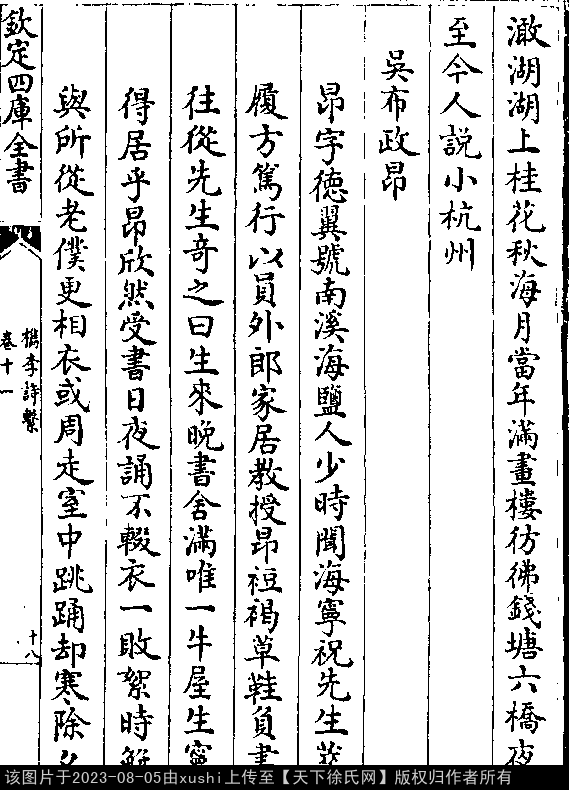 澉湖湖上桂花秋海月當年滿畫樓彷彿錢塘六橋夜
至今人説小杭州
吳布政昂
昂字徳翼號南溪海鹽人少時聞海寧祝先生萃
履方篤行以員外郎家居教授昂裋褐草鞋負書
往從先生奇之曰生來晚書舍滿唯一牛屋生寧
得居乎昂欣然受書日夜誦不輟衣一敗絮時解
與所從老僕更相衣或周走室中跳踊却寒除夕
欽定四庫全書
檇李詩繫
卷十一
十八
该图片于2023-08-05由xushi上传至【天下徐氏网】版权归作者所有